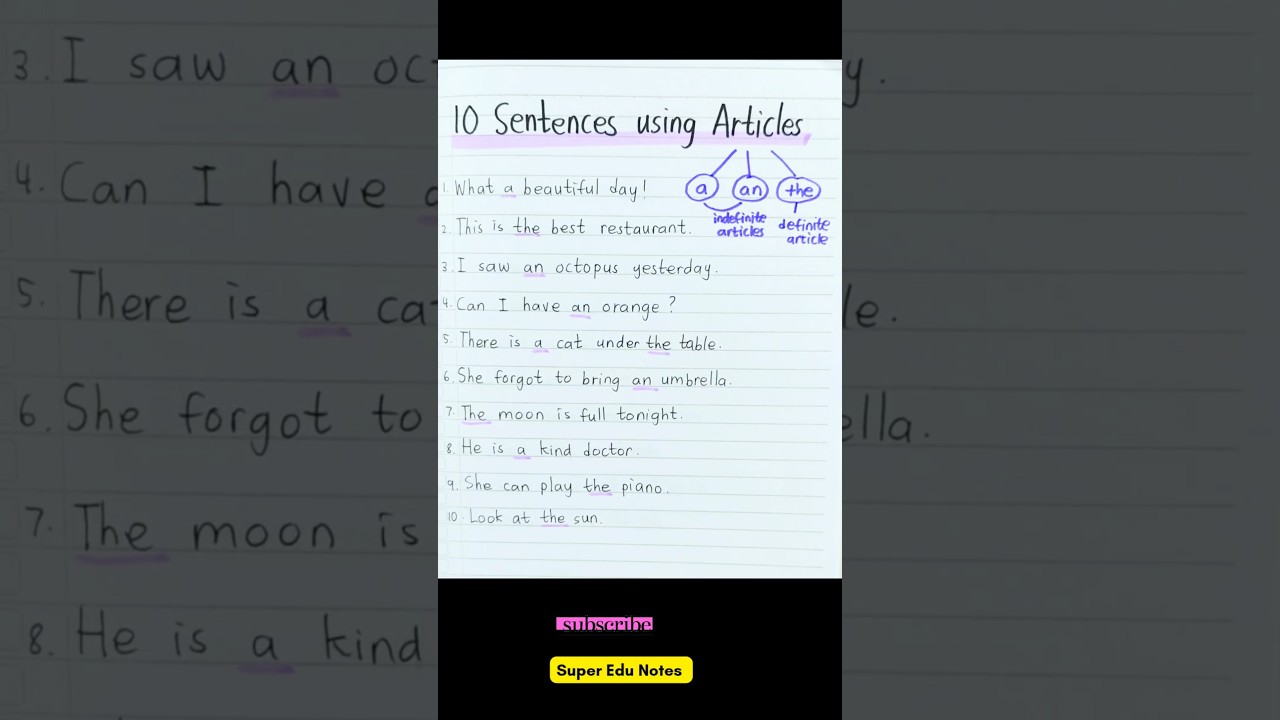 10 Sentences using Articles
a an the
indefinite articles
definite article
1. What a beautiful day!
2. This is the best restaurant.
3. I saw an octopus yesterday.
4. Can I have an orange?
5. There is a cat under the table.
6. She forgot to bring an umbrella.
7. The moon is full tonight.
8. He is a kind doctor.
9. She can play the piano.
10. Look at the sun.
subscribe
Super Edu Notes
3. I saw an oc
y.
4. Can I have
5. There is a ca
le.
6. She forgot to
ella.
7. The moon is
8. He is a kind